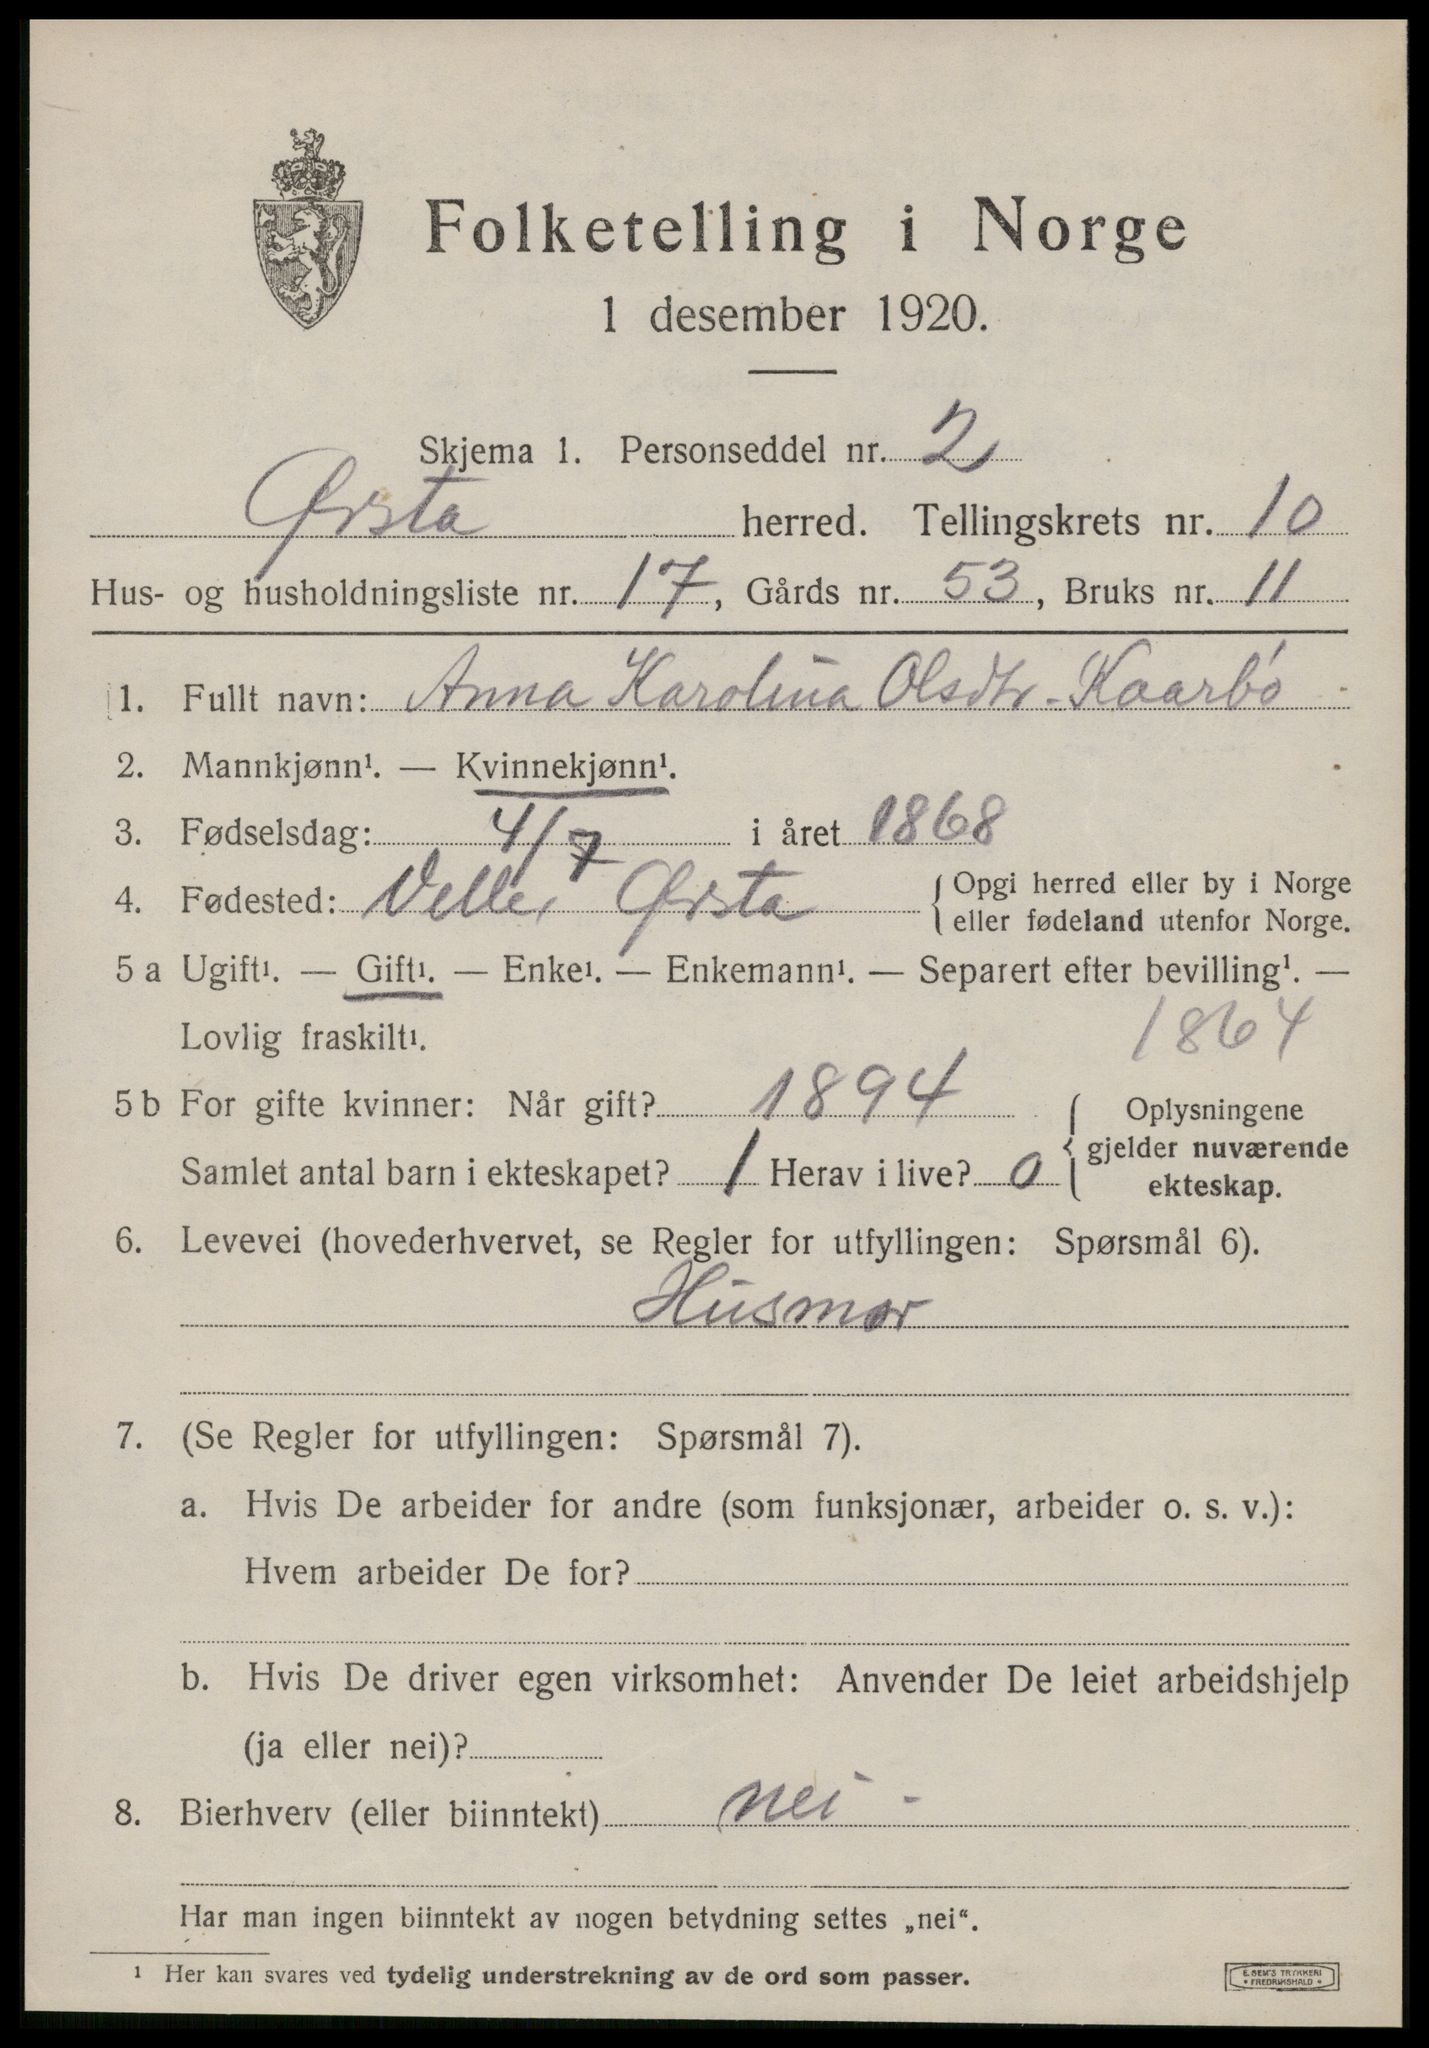 Folketelling i Norge
1 desember 1920.
Skjema 1. Personseddel nr. 2
Ørsta herred. Tellingskrets nr. 10
Hus- og husholdningsliste nr. 17, Gårds nr. 53, Bruks nr. 11
1. Fullt navn: Anna Karolina Olsdtr. Kaarbö
2. Mannkjønn¹. — Kvinnekjønn¹.
3. Fødselsdag: 4/7 i året 1868
4. Fødested: Velle, Ørsta { Opgi herred eller by i Norge
eller fødeland utenfor Norge.
5 a Ugift¹. — Gift¹. — Enke¹. — Enkemann¹. — Separert efter bevilling¹. —
Lovlig fraskilt¹. 1864
5 b For gifte kvinner: Når gift? 1894
Samlet antal barn i ekteskapet? 1 Herav i live? 0
{ Oplysningene
gjelder nuværende
ekteskap.
6. Levevei (hovederhvervet, se Regler for utfyllingen: Spørsmål 6).
Husmor
7. (Se Regler for utfyllingen: Spørsmål 7).
a. Hvis De arbeider for andre (som funksjonær, arbeider o. s. v.):
Hvem arbeider De for?
b. Hvis De driver egen virksomhet: Anvender De leiet arbeidshjelp
(ja eller nei)?
8. Bierhverv (eller biinntekt) nei -
Har man ingen biinntekt av nogen betydning settes „nei“.
¹ Her kan svares ved tydelig understrekning av de ord som passer.
E. SEM'S TRYKKERI
• FREDRIKSHALD •